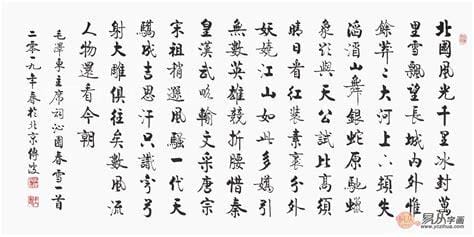 北國風光千里冰封萬
里雪飄望長城內外惟
餘莽々大河上下頓失
滔滔山舞銀蛇原馳蠟
象欲與天公試比高須
晴日看紅裝素裹分外
妖嬈江山如此多嬌引
無數英雄競折腰惜秦
皇漢武略輸文采唐宗
宋祖稍遜風騷一代天
驕成吉思汗只識彎弓
射大雕俱往矣數風流
人物還看今朝
毛澤東主席詞沁園春雪一首
二零一九年春於北京傅波
易从字画
www.yizihua.com